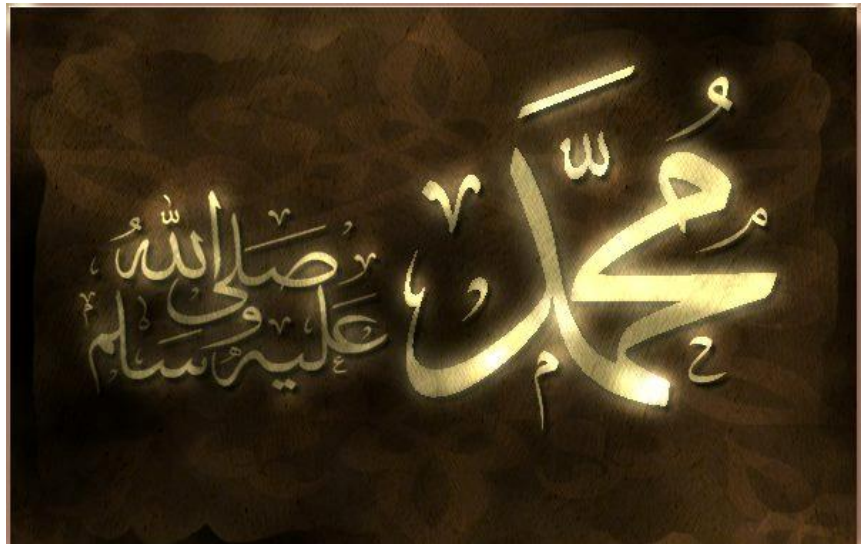 مُحَمَّد
صَلَى اللّٰهُ
عَلَيهِ وَسَلم